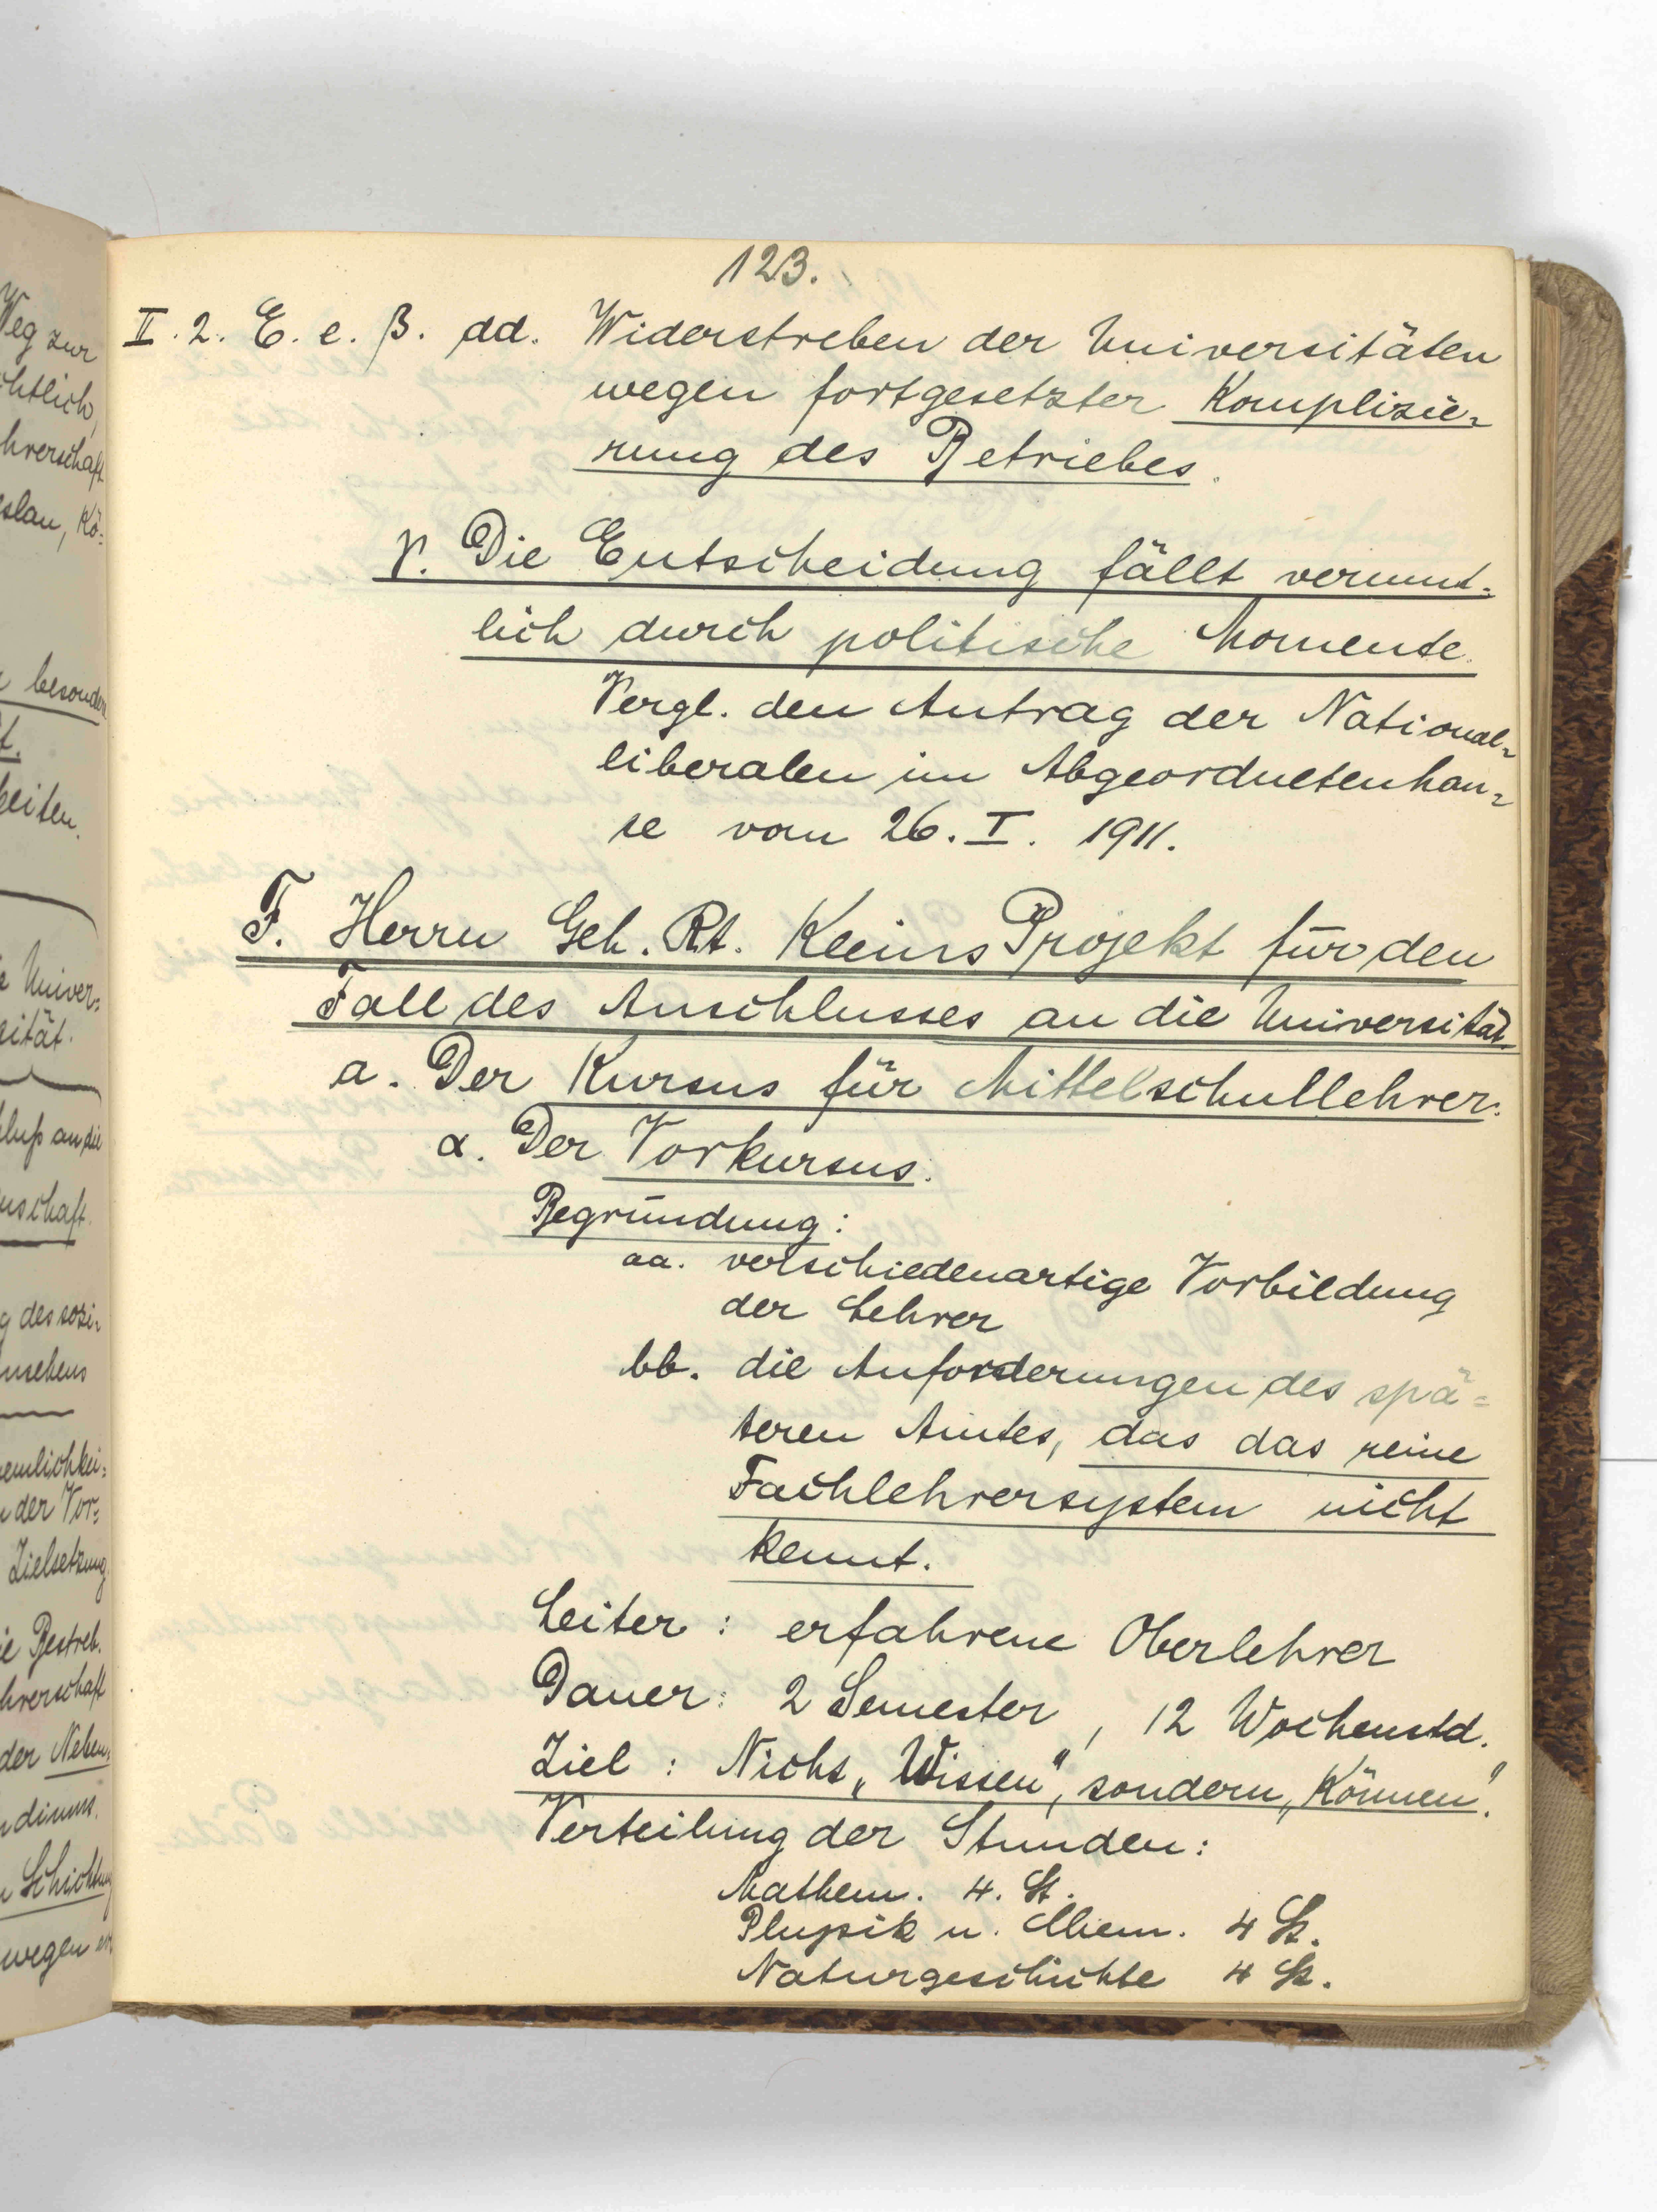 Weg zur
chtlich,
hrerschaft
eslau, Kö-
besonder
t.
keiten.
e Univer-
sität.
luß an die
nschaft.
g des sozi-
nsehens
emlichkei-
der Vor-
Zielsetzung
ie Bestreb.
hrerschaft
der Neben-
diums.
Schichtung
wegen
123.
II. 2. E. e. β. dd. Widerstreben der Universitäten
wegen fortgesetzter Komplizie-
rung des Betriebes.
γ. Die Entscheidung fällt vermut-
lich durch politische Momente.
Vergl. den Antrag der National-
liberalen im Abgeordnetenhau-
se vom 26. I. 1911.
F. Herrn Geh. Rt. Kleins Projekt für den
Fall des Anschlusses an die Universität.
a. Der Kursus für Mittelschullehrer.
α. Der Vorkursus.
Begründung:
aa. verschiedenartige Vorbildung
der Lehrer
bb. die Anforderungen des spä-
teren Amtes, das das reine
Fachlehrersystem nicht
kennt.
Leiter: erfahrene Oberlehrer
Dauer: 2 Semester, 12 Wochenstd.
Ziel: Nicht „Wissen", sondern „Können".
Verteilung der Stunden:
Mathem. 4. St.
Physik u. Chem. 4 St.
Naturgeschichte 4 St.